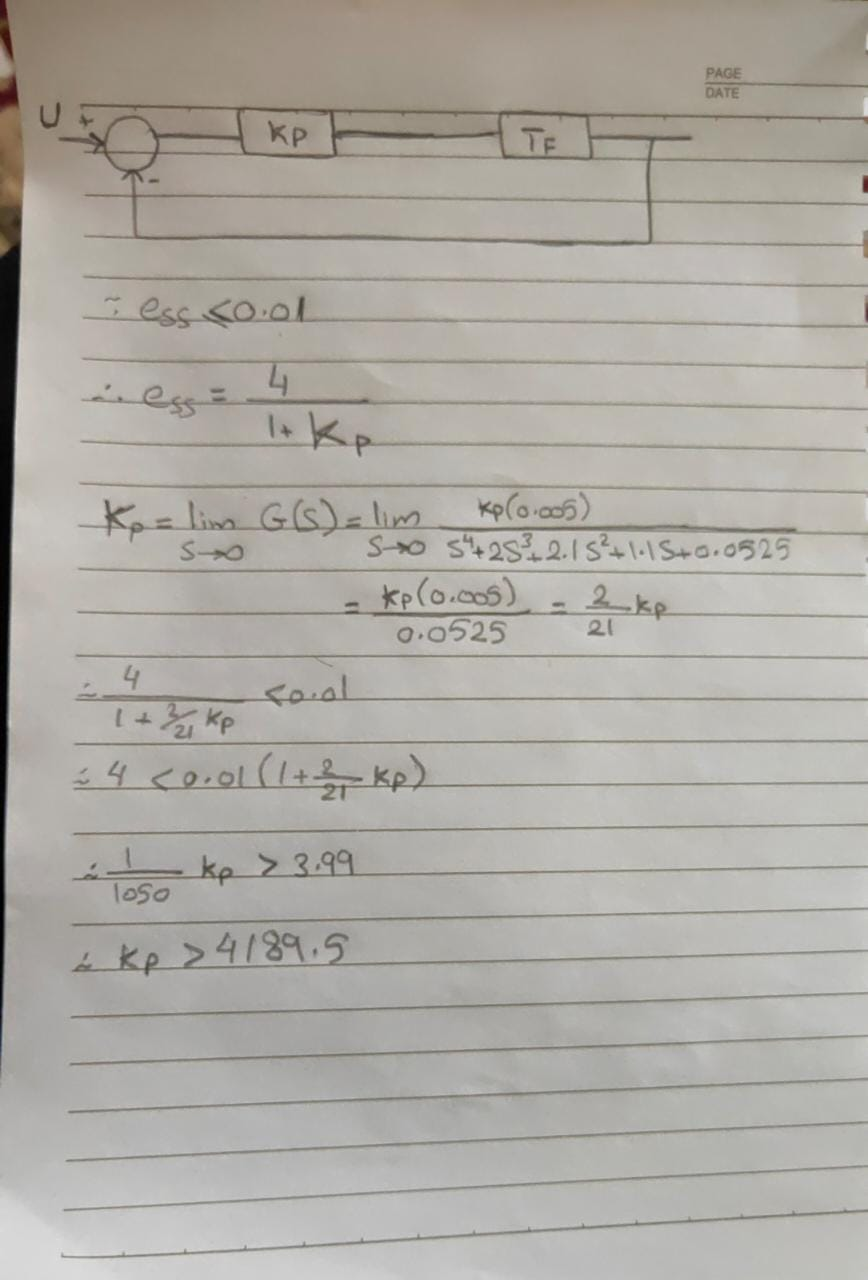 PAGE
DATE
U + KP TF
-
∵ ess <0.01
∴ ess = 4 / 1+ Kp
Kp = lim S→0 G(S) = lim S→0 kp(0.005) / S⁴+2S³+2.1S²+1.1S+0.0525
= kp(0.005) / 0.0525 = 2/21 kp
∴ 4 / 1 + 2/21 kp <0.01
∴ 4 <0.01(1+ 2/21 kp)
∴ 1/1050 kp > 3.99
∴ kp > 4189.5